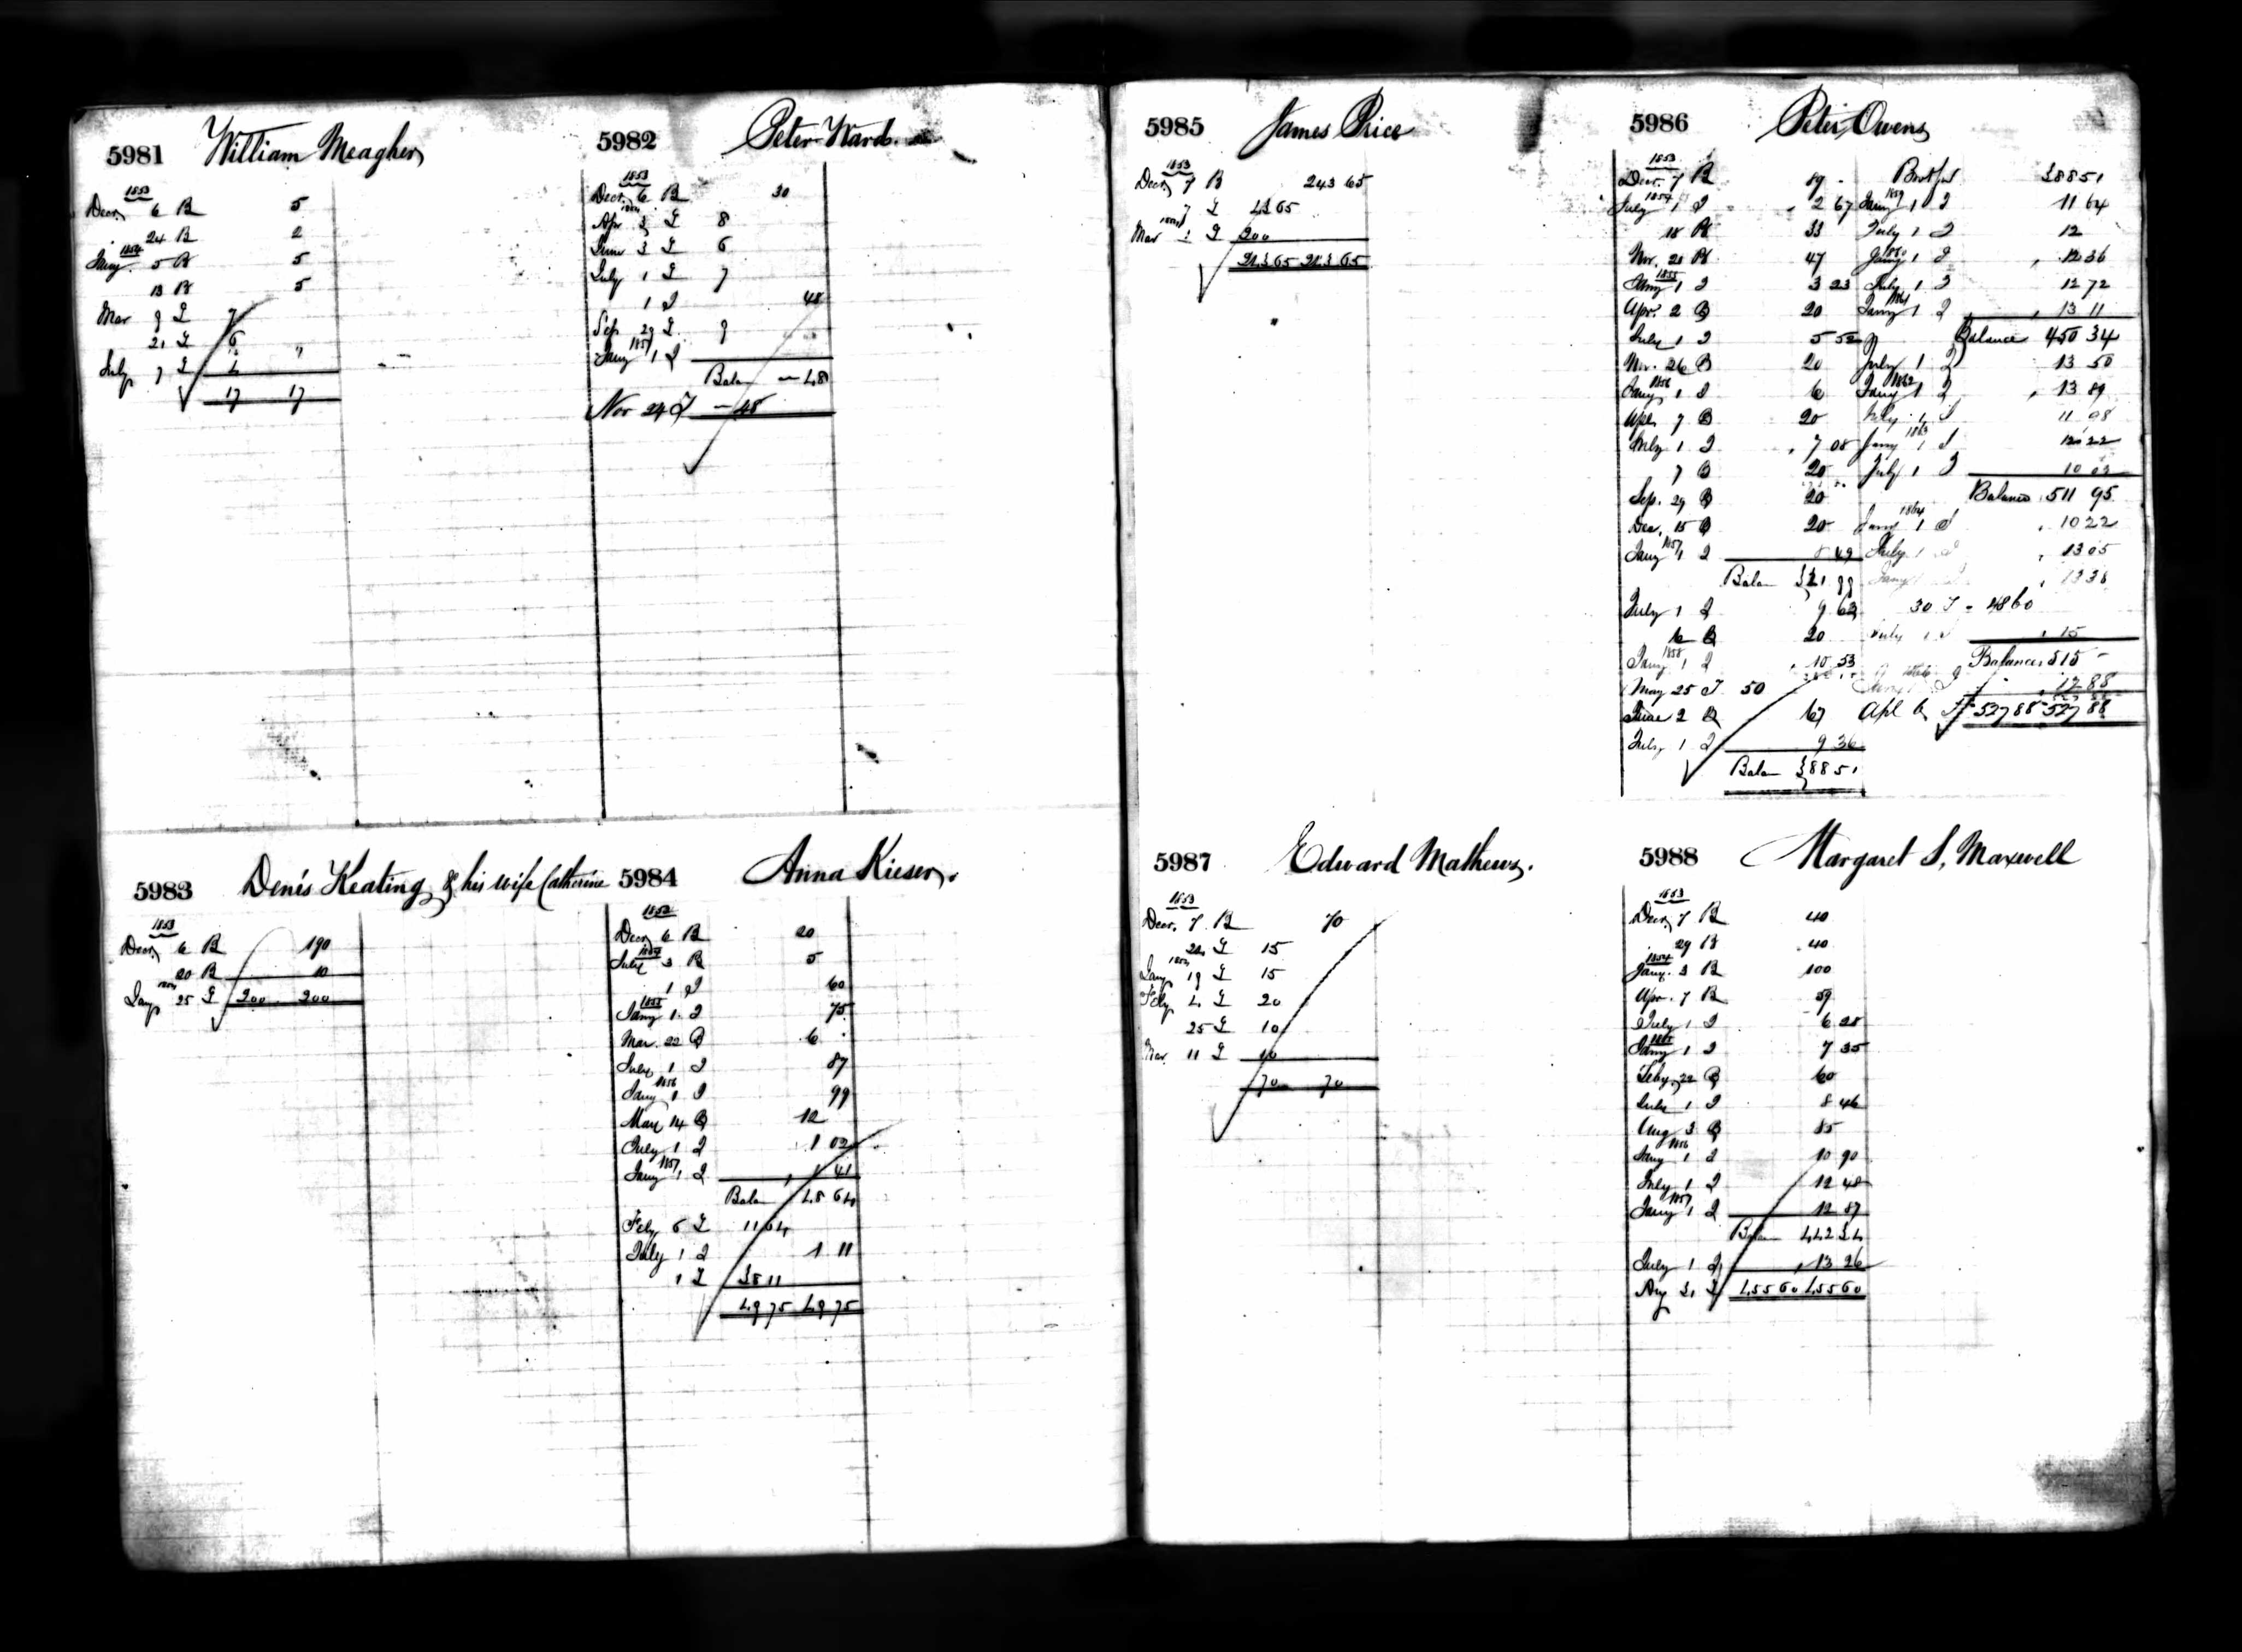 5981 William Meagher
1853
Decr. 6 B 5
24 B 2
1854
Jany. 5 B 5
13 B 5
Mar 9 T 7
21 T 6
July 7 T 4
17 17
5982 Peter Ward.
1853
Decr. 6 B 30
1854
Apr 3 T 8
June 3 T 6
July 1 T 7
1 I 48
Sep 29 T 9
1857
Jany 1 I
Balan - 48
Nov 24 T - 48
5983 Denis Keating & his wife Catherine
1853
Decr. 6 B 190
20 B 10
1854
Jany 25 T 200 200
5984 Anna Kieser.
1853
Decr. 6 B 20
1854
July 3 B 5
1 I 60
1855
Jany 1 I 75
Mar. 22 B 6
July 1 I 87
1856
Jany 1 I 99
May 14 B 12
July 1 I 1 02
1857
Jany 1 I 1 41
Balan 48 64
Feby 6 T 11 64
July 1 I 1 11
1 T 38 11
49 75 49 75
5985 James Price
1853
Decr. 7 B 243 65
7 T 43 65
1854
Mar 1 T 200
243 65 243 65
5986 Peter Owens
1853
Decr. 7 B 89 -
1854
July 1 I 2 67
18 B 33
Nov. 21 B 47
1855
Jany 1 I 3 23
Apr. 2 B 20
July 1 I 5 52
Nov. 26 B 20
1856
Jany 1 I 6
Apl. 7 B 20
July 1 I 7 08
7 B 20
Sep. 29 B 20
Dec. 15 B 20
1857
Jany 1 I 8 49
Balan 321 99
July 1 I 9 63
16 B 20
1858
Jany 1 I 10 53
May 25 T 50
June 2 B 67
July 1 I 9 36
Balan 388 51
388 51
1859
Jany 1 I 11 64
July 1 I 12
1860
Jany 1 I 12 36
July 1 I 12 72
1861
Jany 1 I 13 11
Balance 450 34
July 1 I 13 50
1862
Jany 1 I 13 89
July 1 I 11 98
1863
Jany 1 I 12 22
July 1 I 10 02
Balance 511 95
1864
Jany 1 I 10 22
July 1 I 13 05
Jany 13 38
30 T - 48 60
July 1 I 15
Balance 515 -
12 88
Apl 6 T 527 88 527 88
5987 Edward Mathews.
1853
Decr. 7 B 70
22 T 15
1854
Jany 19 T 15
Feby 4 T 20
25 T 10
Mar 11 T 10
70 70
5988 Margaret S. Maxwell
1853
Decr. 7 B 40
29 B 40
1854
Jany. 3 B 100
Apr. 7 B 59
July 1 I 6 28
1855
Jany 1 I 7 35
Feby 22 B 60
July 1 I 8 46
Aug 3 B 85
1856
Jany 1 I 10 90
July 1 I 12 48
1857
Jany 1 I 12 87
Balan 442 34
July 1 I 13 26
Aug 3 T 455 60 455 60